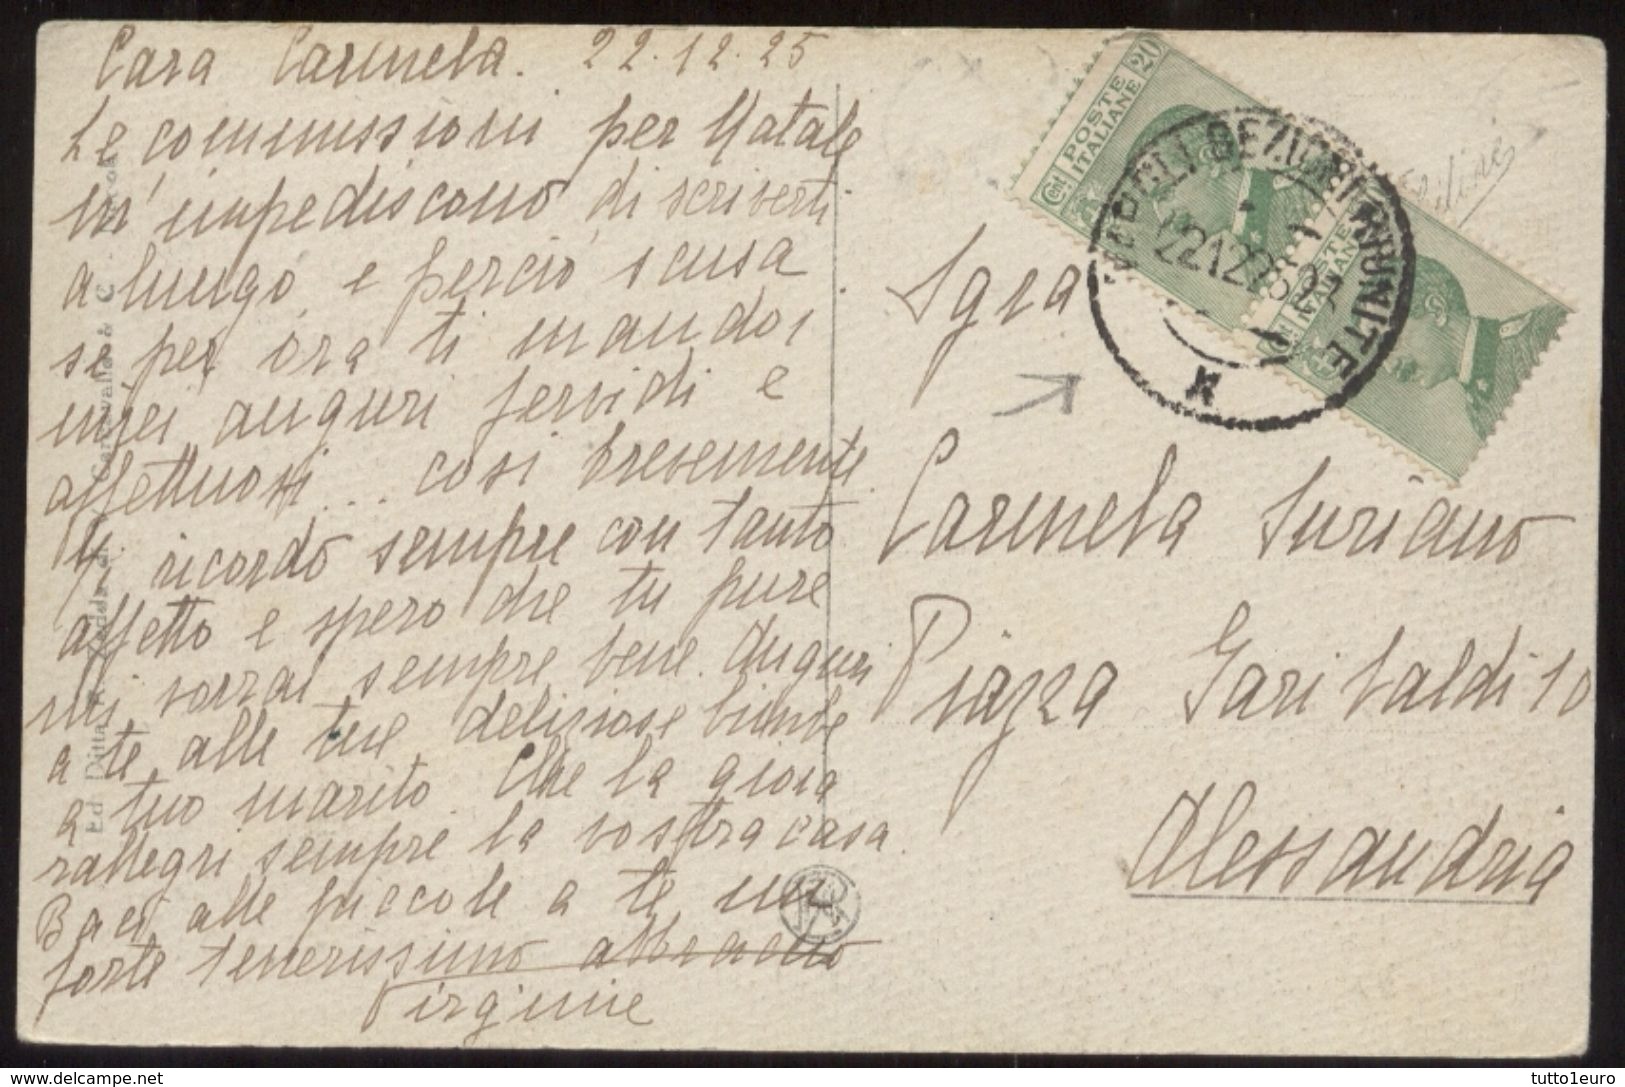 Cara Carmela. 22.12.25
Le commissioni per Natale
m'impediscono di scriverti
a lungo, e perciò scusa
se per ora ti mando i
miei auguri fervidi e
affettuosi... così brevemente.
Ti ricordo sempre con tanto
affetto e spero che tu pure
mi vorrai sempre bene. Auguri
a te alle tue deliziose bimbe
a tuo marito. Che la gioia
rallegri sempre la vostra casa.
Baci alle piccole a te un
forte tenerissimo abbraccio
Virginie
POSTE ITALIANE
Cent 20
POSTE ITALIANE
NAPOLI SEZ. RIUNITE
Sgra
Carmela Suriano
Piazza Garibaldi 10
Alessandria
Ed. Ditta
Carcavallo & C.
tutto1euro